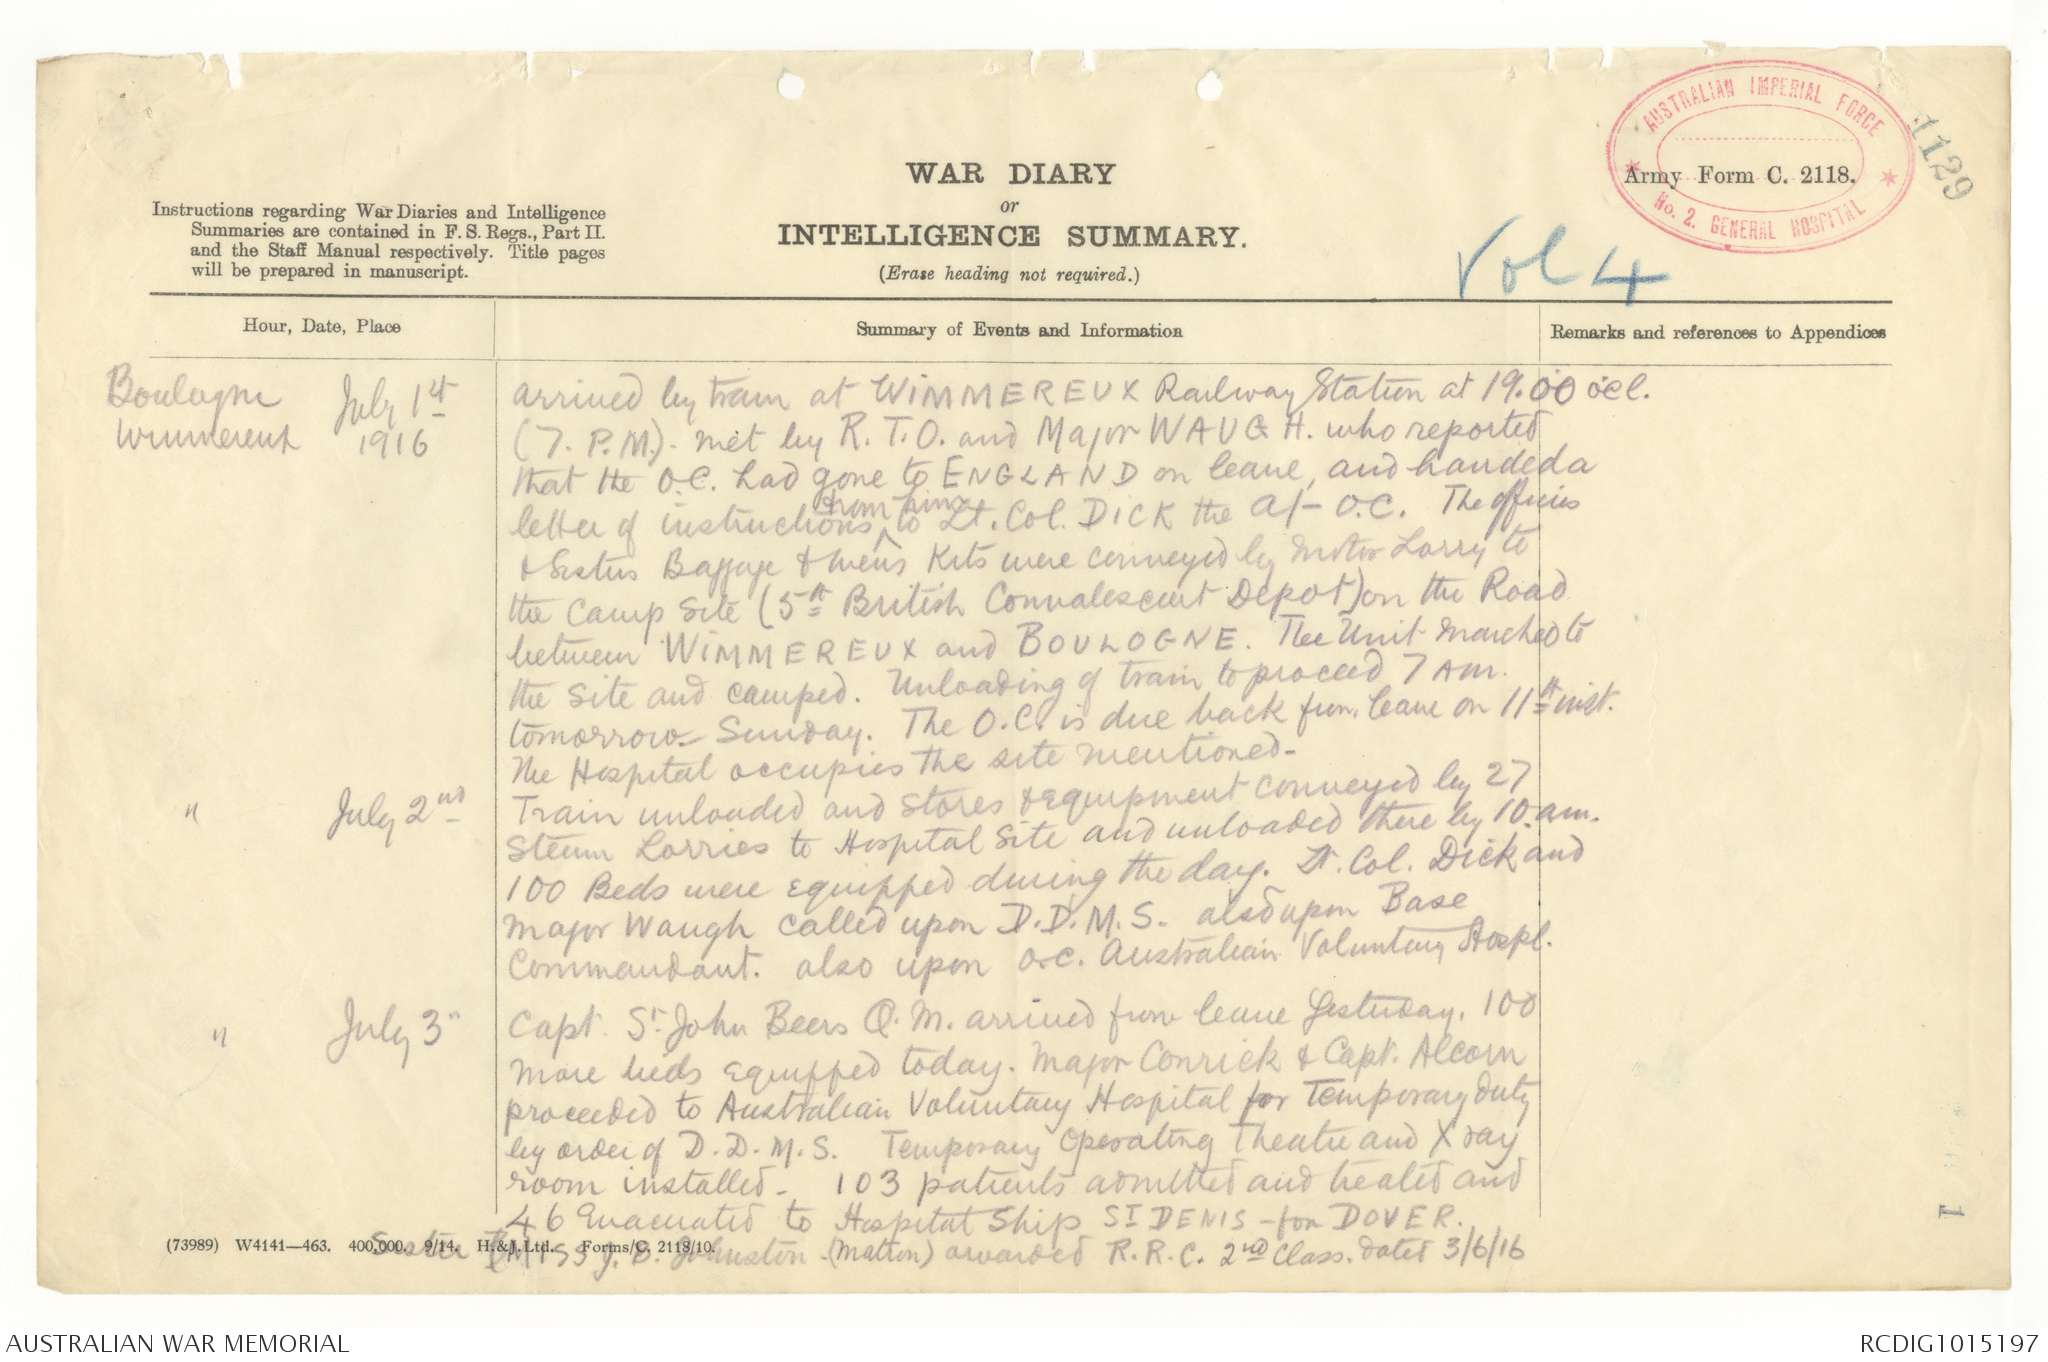 AUSTRALIAN IMPERIAL FORCE
No. 2. GENERAL HOSPITAL
1129
WAR DIARY
or
INTELLIGENCE SUMMARY.
(Erase heading not required.)
Army Form C. 2118.
Instructions regarding War Diaries and Intelligence
Summaries are contained in F. S. Regs., Part II.
and the Staff Manual respectively. Title pages
will be prepared in manuscript.
Vol 4
Hour, Date, Place
Summary of Events and Information
Remarks and references to Appendices
Boulogne July 1st
Wimmereux 1916
arrived by train at WIMMEREUX Railway Station at 19.00 ocl.
(7. P.M.). met by R. T. O. and Major WAUGH. who reported
that the O.C. had gone to ENGLAND on leave, and handed a
letter of instructions from him to Lt. Col. DICK the a/- O.C. The officers
& Sisters Baggage & men's Kits were conveyed by Motor Lorry to
the Camp Site (5th British Convalescent Depot) on the Road
between WIMMEREUX and BOULOGNE. The Unit marched to
the site and camped. Unloading of train to proceed 7 AM.
tomorrow - Sunday. The O.C. is due back from leave on 11th inst.
The Hospital occupies the site mentioned -
" July 2nd
Train unloaded and stores & equipment conveyed by 27
Steam Lorries to Hospital Site and unloaded there by 10. am.
100 Beds were equipped during the day. Lt. Col. Dick and
Major Waugh called upon D.D.M.S. also upon Base
Commandant. also upon O.C. Australian Voluntary Hospl.
" July 3"
Capt. St. John Beers Q. M. arrived from leave yesterday. 100
more beds equipped today. Major Conrick & Capt. Alcorn
proceeded to Australian Voluntary Hospital for Temporary duty
by order of D. D. M. S. Temporary Operating Theatre and X ray
room installed - 103 patients admitted and treated and
46 Evacuated to Hospital Ship ST DENIS - for DOVER.
Sister (Miss J. B. Johnston (Matron) awarded R. R. C. 2nd Class. dated 3/6/16
(73989) W4141—463. 400,000. 9/14. H.&J.Ltd. Forms/C. 2118/10.
1
AUSTRALIAN WAR MEMORIAL
RCDIG1015197